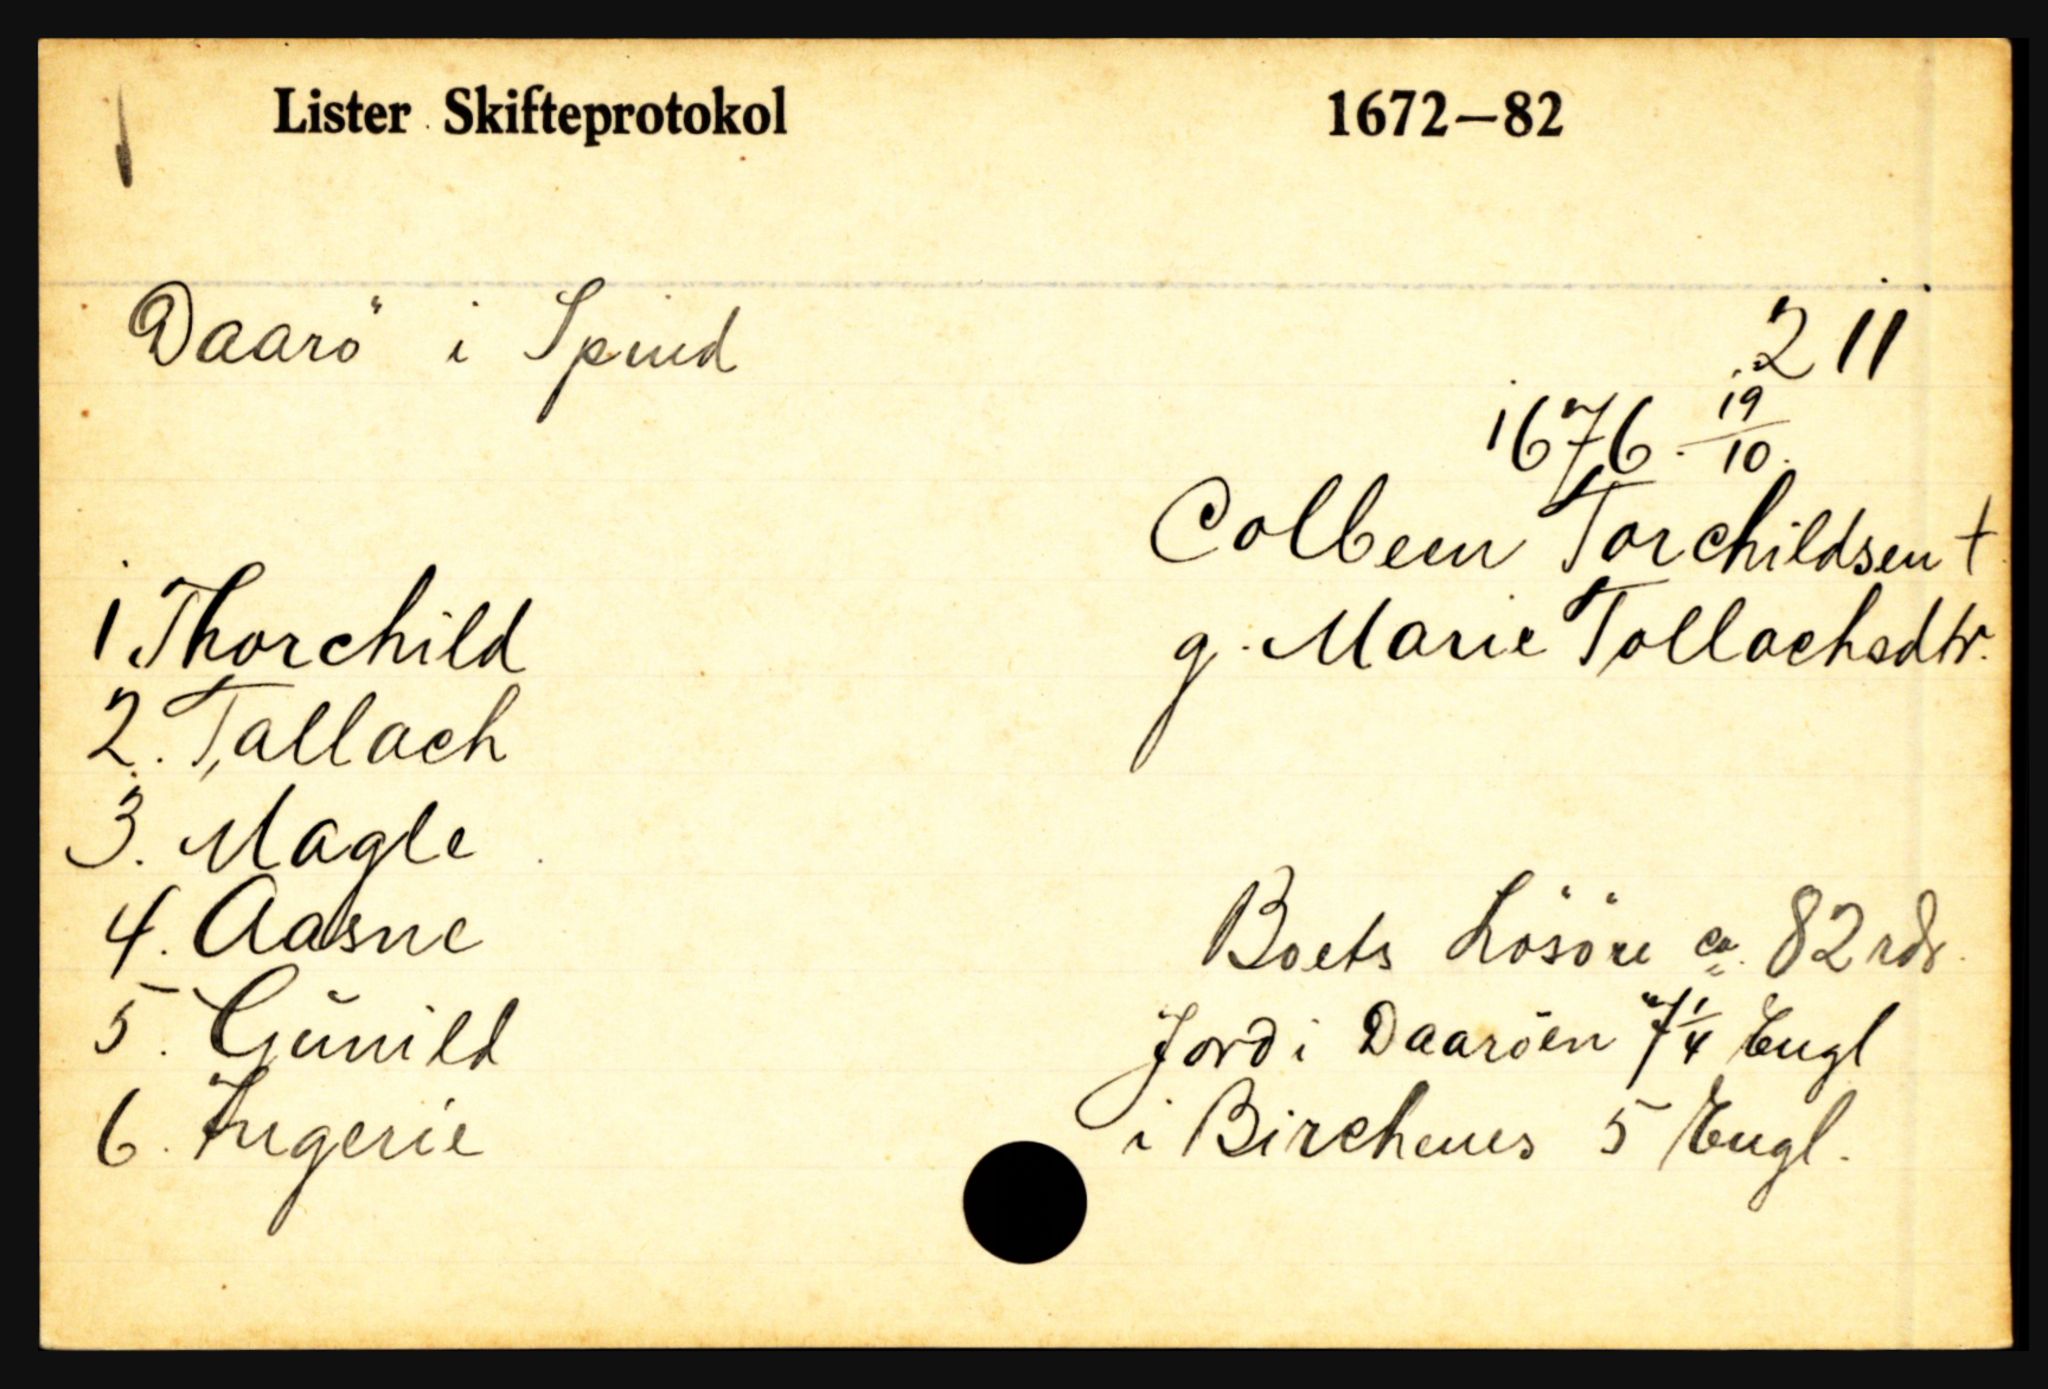 Lister Skifteprotokol 1672—82
Daarö i Spind 211
1676 19/10.
Colbeen Torchildsen †
g. Marie Tollachsdtr.
1 Thorchild
2. Tallach
3. Magle
4. Aasne
5. Gunild
6. Ingerie
Boets Lösöre ca. 82 rdr.
Jord i Daaröen 7 1/4 Engl
i Birchenes 5 Engl.